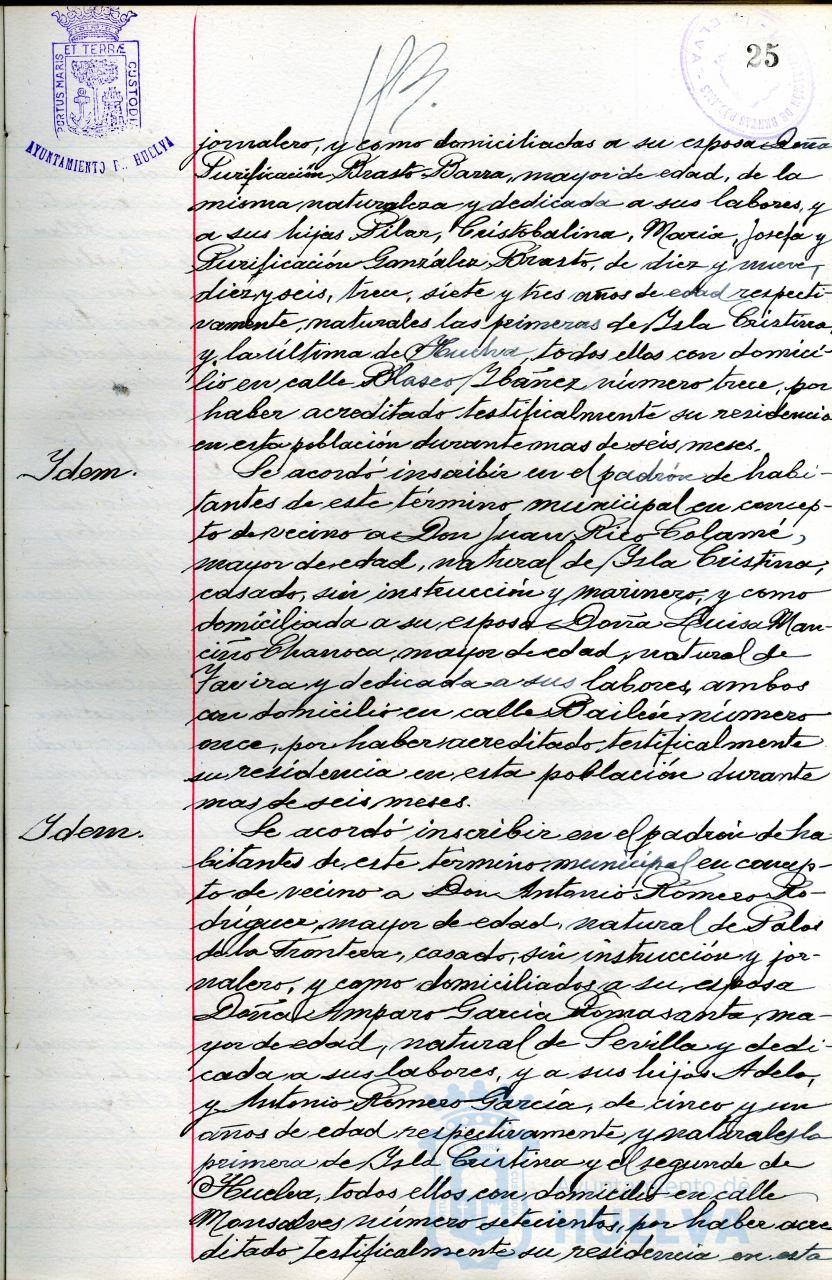 PORTUS MARIS ET TERRÆ CUSTODIA
AYUNTAMIENTO DE HUELVA
25
jornalero, y como domiciliadas a su esposa Doña
Purificación Brasto Barra, mayor de edad, de la
misma naturaleza y dedicada a sus labores, y
a sus hijas Pilar, Cristobalina, María, Josefa y
Purificación González Brasto, de diez y nueve,
diez y seis, trece, siete y tres años de edad respecti-
vamente, naturales las primeras de Isla Cristina,
y la última de Huelva, todos ellos con domici-
lio en calle Blasco Ibáñez número trece, por
haber acreditado testificalmente su residencia
en esta población durante mas de seis meses.
Idem.
Se acordó inscribir en el padrón de habi-
tantes de este término municipal en concep-
to de vecino a Don Juan Rico Colamé,
mayor de edad, natural de Isla Cristina,
casado, sin instrucción y marinero, y como
domiciliada a su esposa Doña Luisa Man-
ciño Charroca, mayor de edad, natural de
Tavira y dedicada a sus labores, ambos
con domicilio en calle Bailén número
once, por haber acreditado testificalmente
su residencia en esta población durante
mas de seis meses.
Idem.
Se acordó inscribir en el padrón de ha
bitantes de este término municipal en concep-
to de vecino a Don Antonio Romero Ro-
dríguez, mayor de edad, natural de Palos
de la Frontera, casado, sin instrucción y jor-
nalero, y como domiciliados a su esposa
Doña Amparo García Romasanta, ma-
yor de edad, natural de Sevilla y dedi-
cada a sus labores, y a sus hijos Adela,
y Antonio Romero García, de cinco y un
años de edad respectivamente y naturales la
primera de Isla Cristina y el segundo de
Huelva, todos ellos con domicilio en calle
Monsalves número setecientos, por haber acre
ditado testificalmente su residencia en esta
Ayuntamiento de
HUELVA